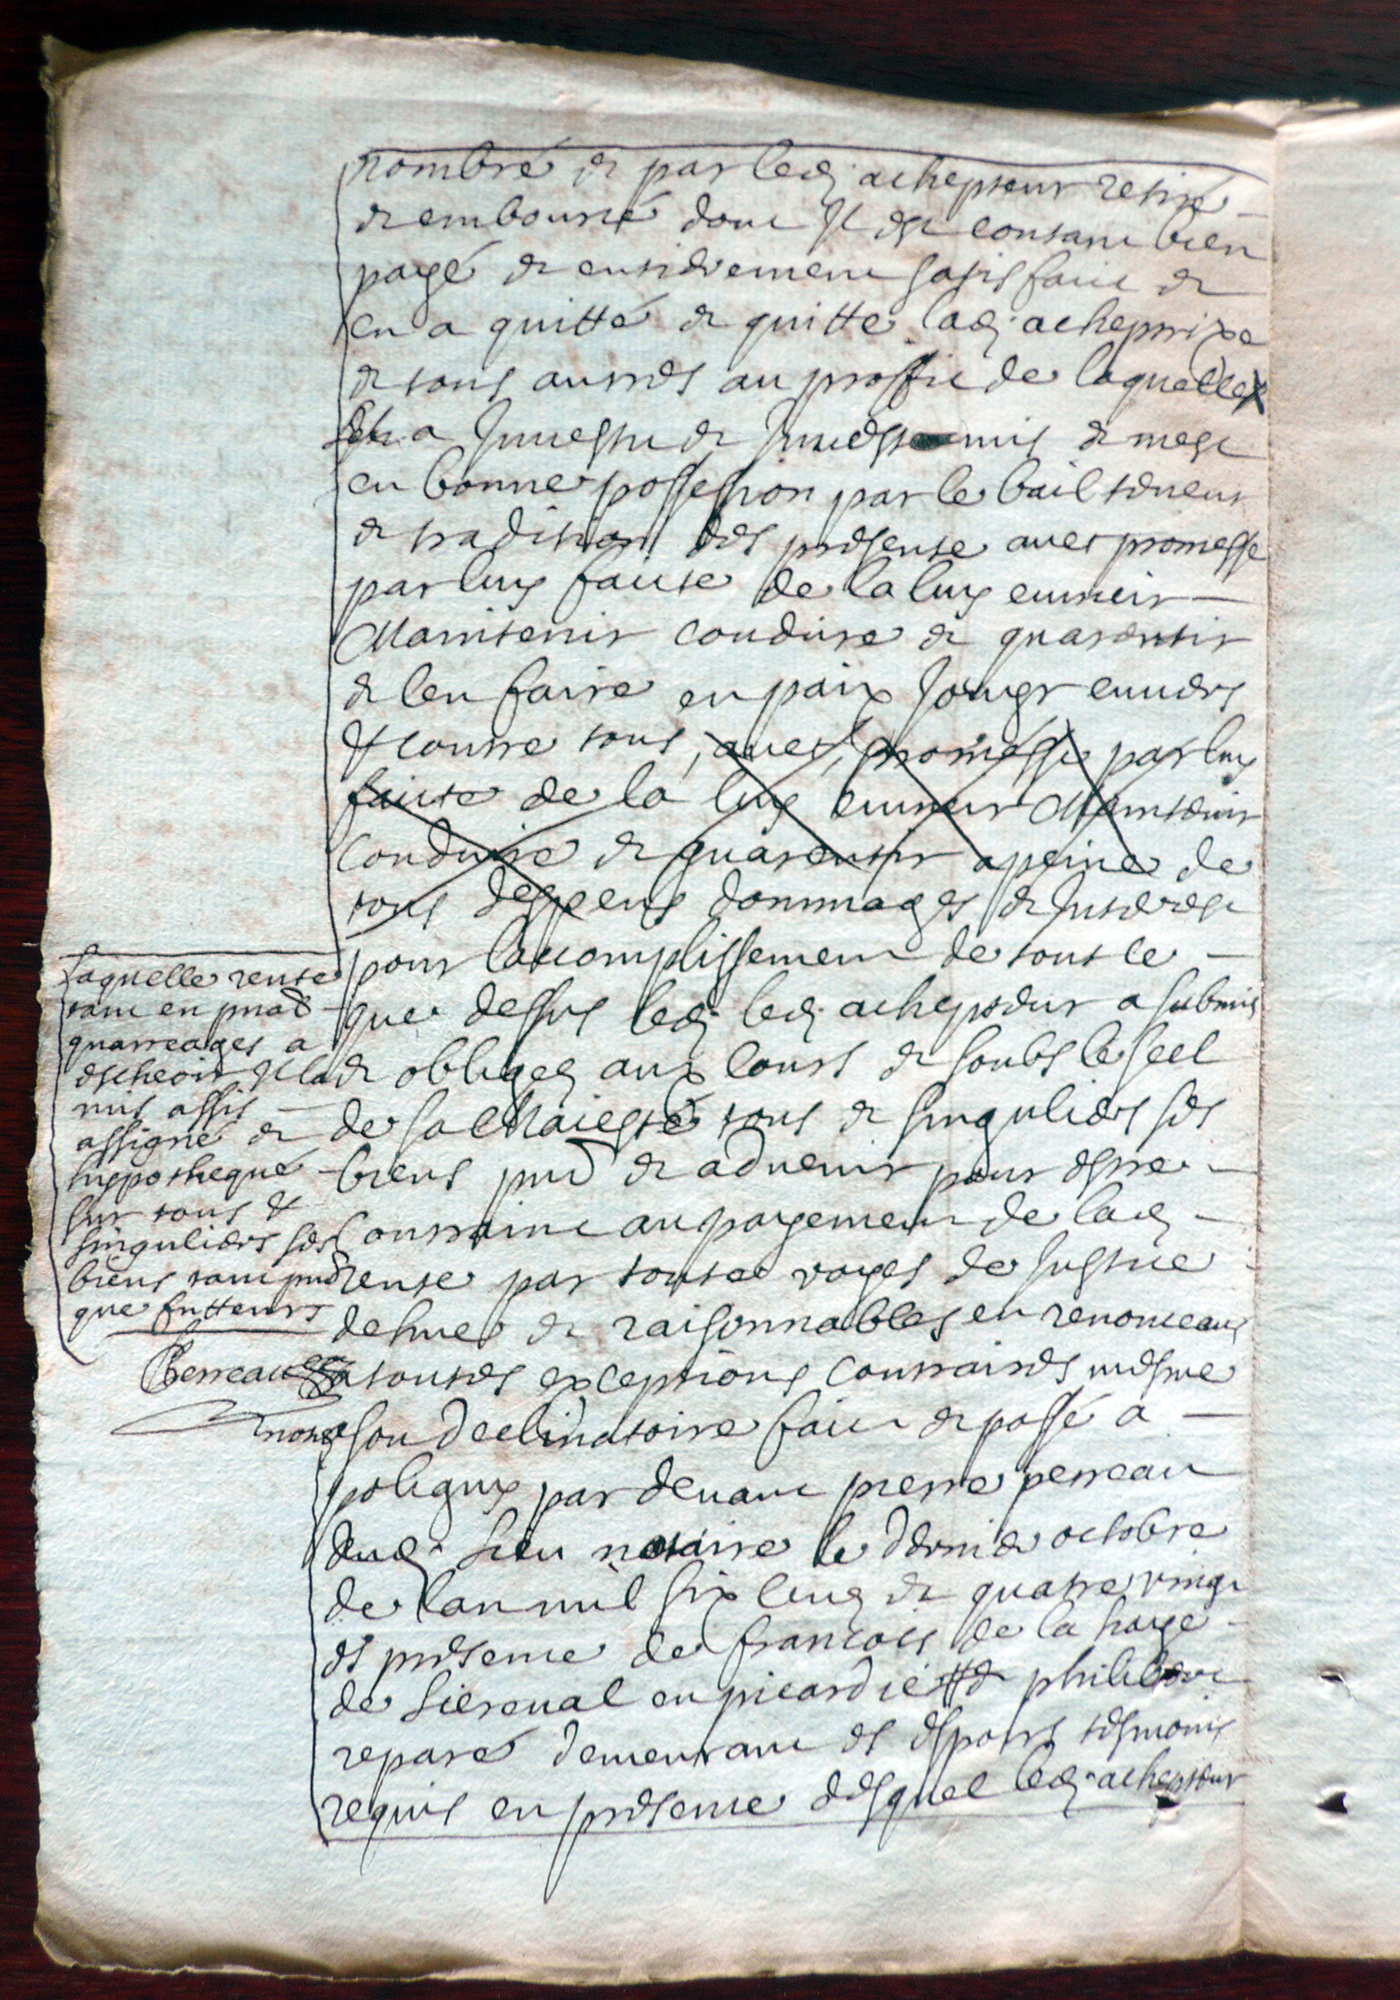 nombré et par led. achepteur retiré
et emboursé dont Il est contant bien
payé et entierement satisfait et
en a quitté et quitte lad. acheptrixe
et tous autres au proffit de laquelle
a Inuestu et Inuest mis et mest
en bonne possession par le bail teneur
et tradition des presente auec promesse
par luy faite de la luy enuieir
Maintenir conduire et guarentir
et len faire en paix Jouyr enuers
et contre tous, auec promesse par luy
faite de la luy enuieir Maintenir
conduire et guarentir a peine de
tous despens dommages et Interest
pour laccomplissement de tout ce
que dessus led. led. achepteur a submis
et obligez aux cours et soubs le seel
de sa Maiesté tous et singuliers ses
biens pnt et aduenir pour estre
contraint au payement de lad.
rente par toutes voyes de Justice
dehue et raisonnables en renonceant
a toutes exceptions contraires mesme
a son declinatoire fait et passé a
poligny par deuant pierre perreau
dud. lieu notaire le dernier octobre
de lan mil six cent et quatre vingt
es presence de francois de la haye
de Siereual en picardie et philibert
reparé demeurant es despart tesmoins
requis en presence desquel led. achepteur
Laquelle rente
tant en pnal
quarreages a
escheoir Il la
mis assis
assigné et
hippothequé
sur tous et
singuliers ses
biens tant pnt
que futteurs
Perreau
not.